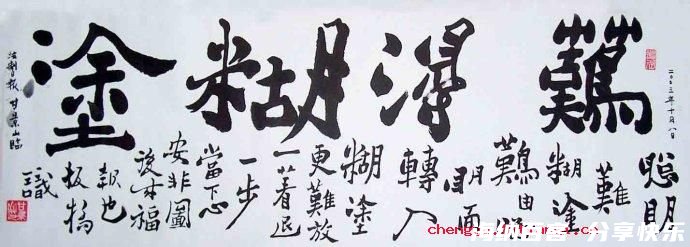 難得糊塗
二〇〇三年十月八日
聰明
難糊塗
難由聰
明而
轉入
糊塗
更難放
一着退
一步
當下心
安非圖
後來福
報也
板橋
識
甘景山臨
分享快乐